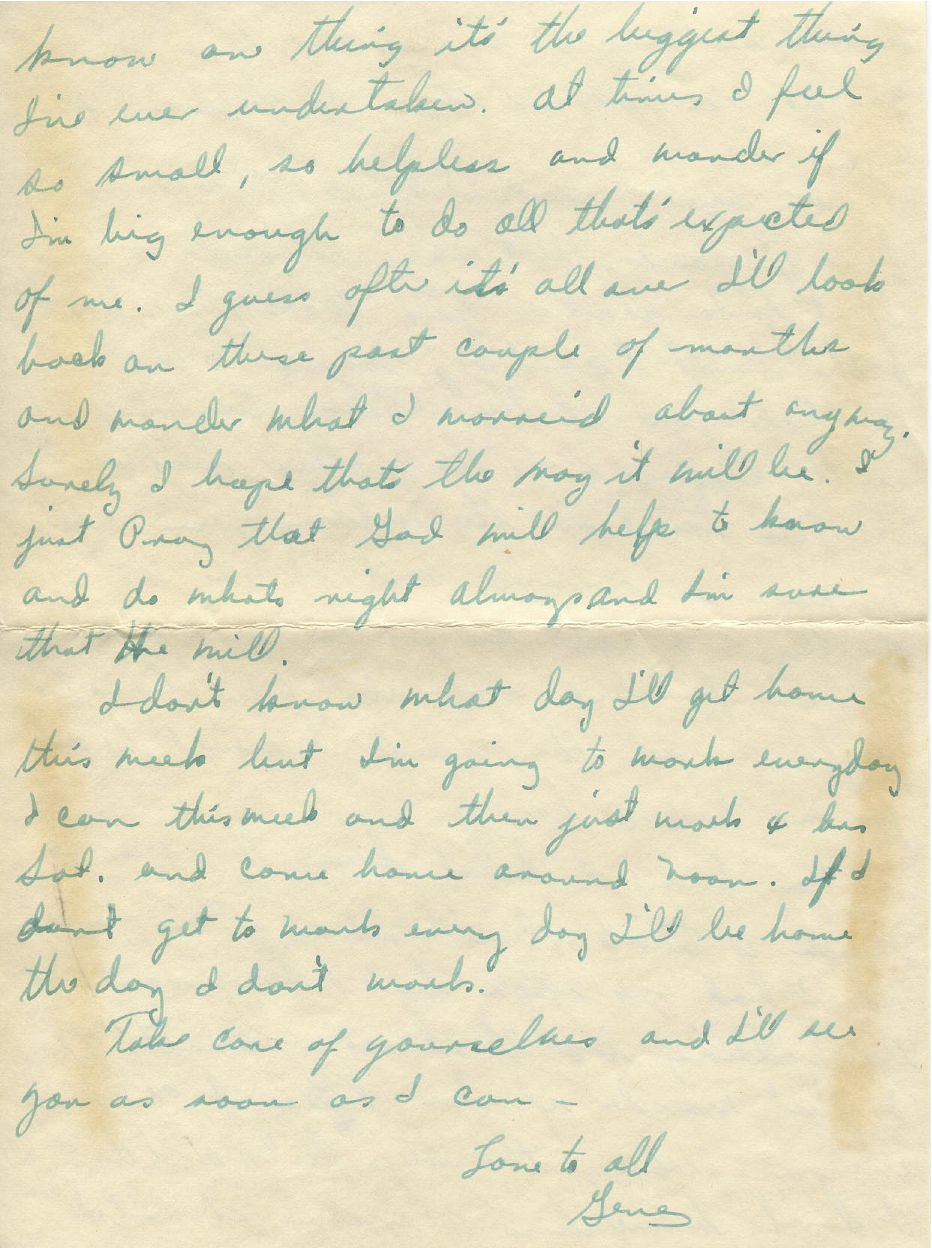 know one thing it's the biggest thing
I've ever undertaken. At times I feel
so small, so helpless and wonder if
I'm big enough to do all that's expected
of me. I guess after it's all over I'll look
back on these past couple of months
and wonder what I worried about anyway.
Surely I hope thats the way it will be. I
just Pray that God will help to know
and do whats right always and I'm sure
that He will.
I don't know what day I'll get home
this week but I'm going to work everyday
I can this week and then just work 4 hrs
Sat. and come home around noon. If I
don't get to work every day I'll be home
the day I don't work.
Take care of yourselves and I'll see
you as soon as I can -
Love to all
Gene